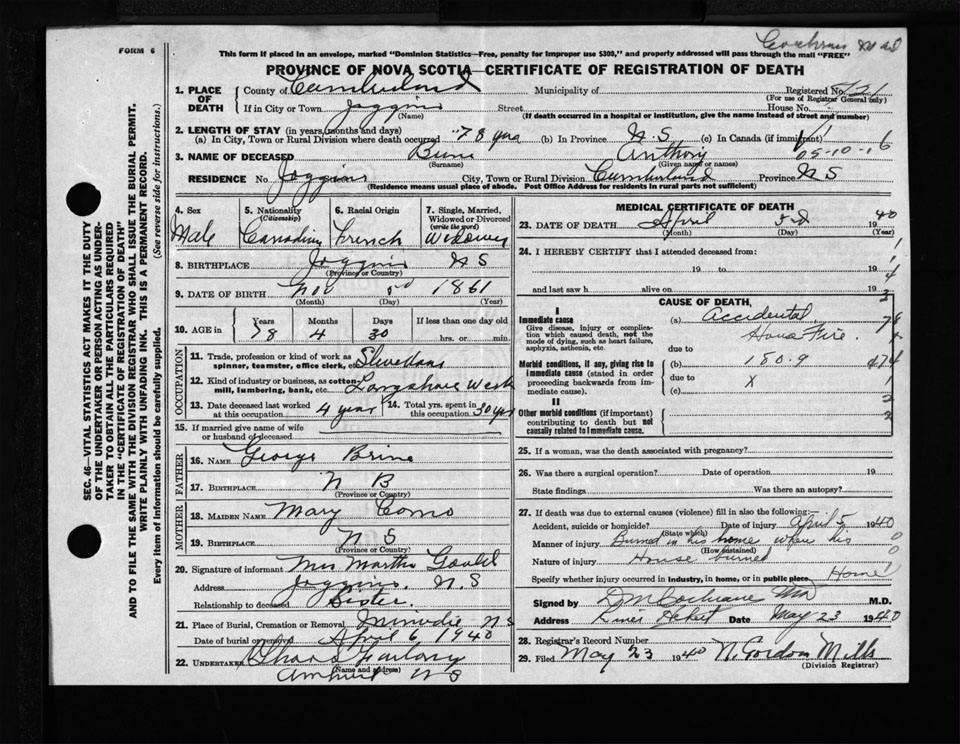 FORM 6
This form if placed in an envelope, marked "Dominion Statistics—Free, penalty for improper use $300," and properly addressed will pass through the mail "FREE"
PROVINCE OF NOVA SCOTIA—CERTIFICATE OF REGISTRATION OF DEATH
1. PLACE OF DEATH
County of Cumberland Municipality of Registered No.
(For use of Registrar General only)
If in City or Town Joggins Street House No.
(Name) (If death occurred in a hospital or institution, give the name instead of street and number)
2. LENGTH OF STAY (in years, months and days)
(a) In City, Town or Rural Division where death occurred 78 yrs (b) In Province N.S (c) In Canada (if immigrant)
3. NAME OF DECEASED Brine Anthony 05-10-16
(Surname) (Given name or names)
RESIDENCE No. Joggins City, Town or Rural Division Cumberland Province N S
(Residence means usual place of abode. Post Office Address for residents in rural parts not sufficient)
4. Sex Male
5. Nationality (Citizenship) Canadian
6. Racial Origin French
7. Single, Married, Widowed or Divorced (write the word) Widower
8. BIRTHPLACE Joggins N S
(Province or Country)
9. DATE OF BIRTH Nov 1861
(Month) (Day) (Year)
10. AGE in Years Months Days If less than one day old
78 4 30 hrs. or min.
OCCUPATION
11. Trade, profession or kind of work as spinner, teamster, office clerk, etc.
12. Kind of industry or business, as cotton-mill, lumbering, bank, etc. Longshore Work
13. Date deceased last worked at this occupation 4 year
14. Total yrs. spent in this occupation 30 yrs
15. If married give name of wife or husband of deceased
FATHER
16. NAME George Brine
17. BIRTHPLACE N B
(Province or Country)
MOTHER
18. MAIDEN NAME Mary Como
19. BIRTHPLACE N S
(Province or Country)
20. Signature of informant Mrs Martha
Address Joggins. N.S
Relationship to deceased Sister
21. Place of Burial, Cremation or Removal Minudie N S
Date of burial or removal April 6 1940
22. UNDERTAKER Chas
(Name and address)
Amherst N S
MEDICAL CERTIFICATE OF DEATH
23. DATE OF DEATH April 19 40
(Month) (Day) (Year)
24. I HEREBY CERTIFY that I attended deceased from:
19 to 19
and last saw h alive on 19
CAUSE OF DEATH
I
Immediate cause (a) Accidental
Give disease, injury or complication which caused death, not the mode of dying, such as heart failure, asphyxia, asthenia, etc.
House Fire.
due to
Morbid conditions, if any, giving rise to immediate cause (stated in order proceeding backwards from immediate cause). (b) 180.9
due to X
(c)
II
Other morbid conditions (if important) contributing to death but not causally related to immediate cause.
25. If a woman, was the death associated with pregnancy?
26. Was there a surgical operation? Date of operation 19
State findings Was there an autopsy?
27. If death was due to external causes (violence) fill in also the following:
Accident, suicide or homicide? Date of injury April 5 1940
(State which)
Manner of injury Burned in his home when his
(How sustained)
Nature of injury House burned
Specify whether injury occurred in industry, in home, or in public place Home
Signed by D M Cochrane MD M.D.
Address River Hebert Date May 23 1940
28. Registrar's Record Number
29. Filed May 23 1940 N. Gordon Mills
(Division Registrar)
SEC. 46—VITAL STATISTICS ACT MAKES IT THE DUTY OF THE UNDERTAKER OR PERSON ACTING AS UNDERTAKER TO OBTAIN ALL THE PARTICULARS REQUIRED IN THE "CERTIFICATE OF REGISTRATION OF DEATH" AND TO FILE THE SAME WITH THE DIVISION REGISTRAR WHO SHALL ISSUE THE BURIAL PERMIT.
WRITE PLAINLY WITH UNFADING INK. THIS IS A PERMANENT RECORD.
Every item of information should be carefully supplied. (See reverse side for instructions.)